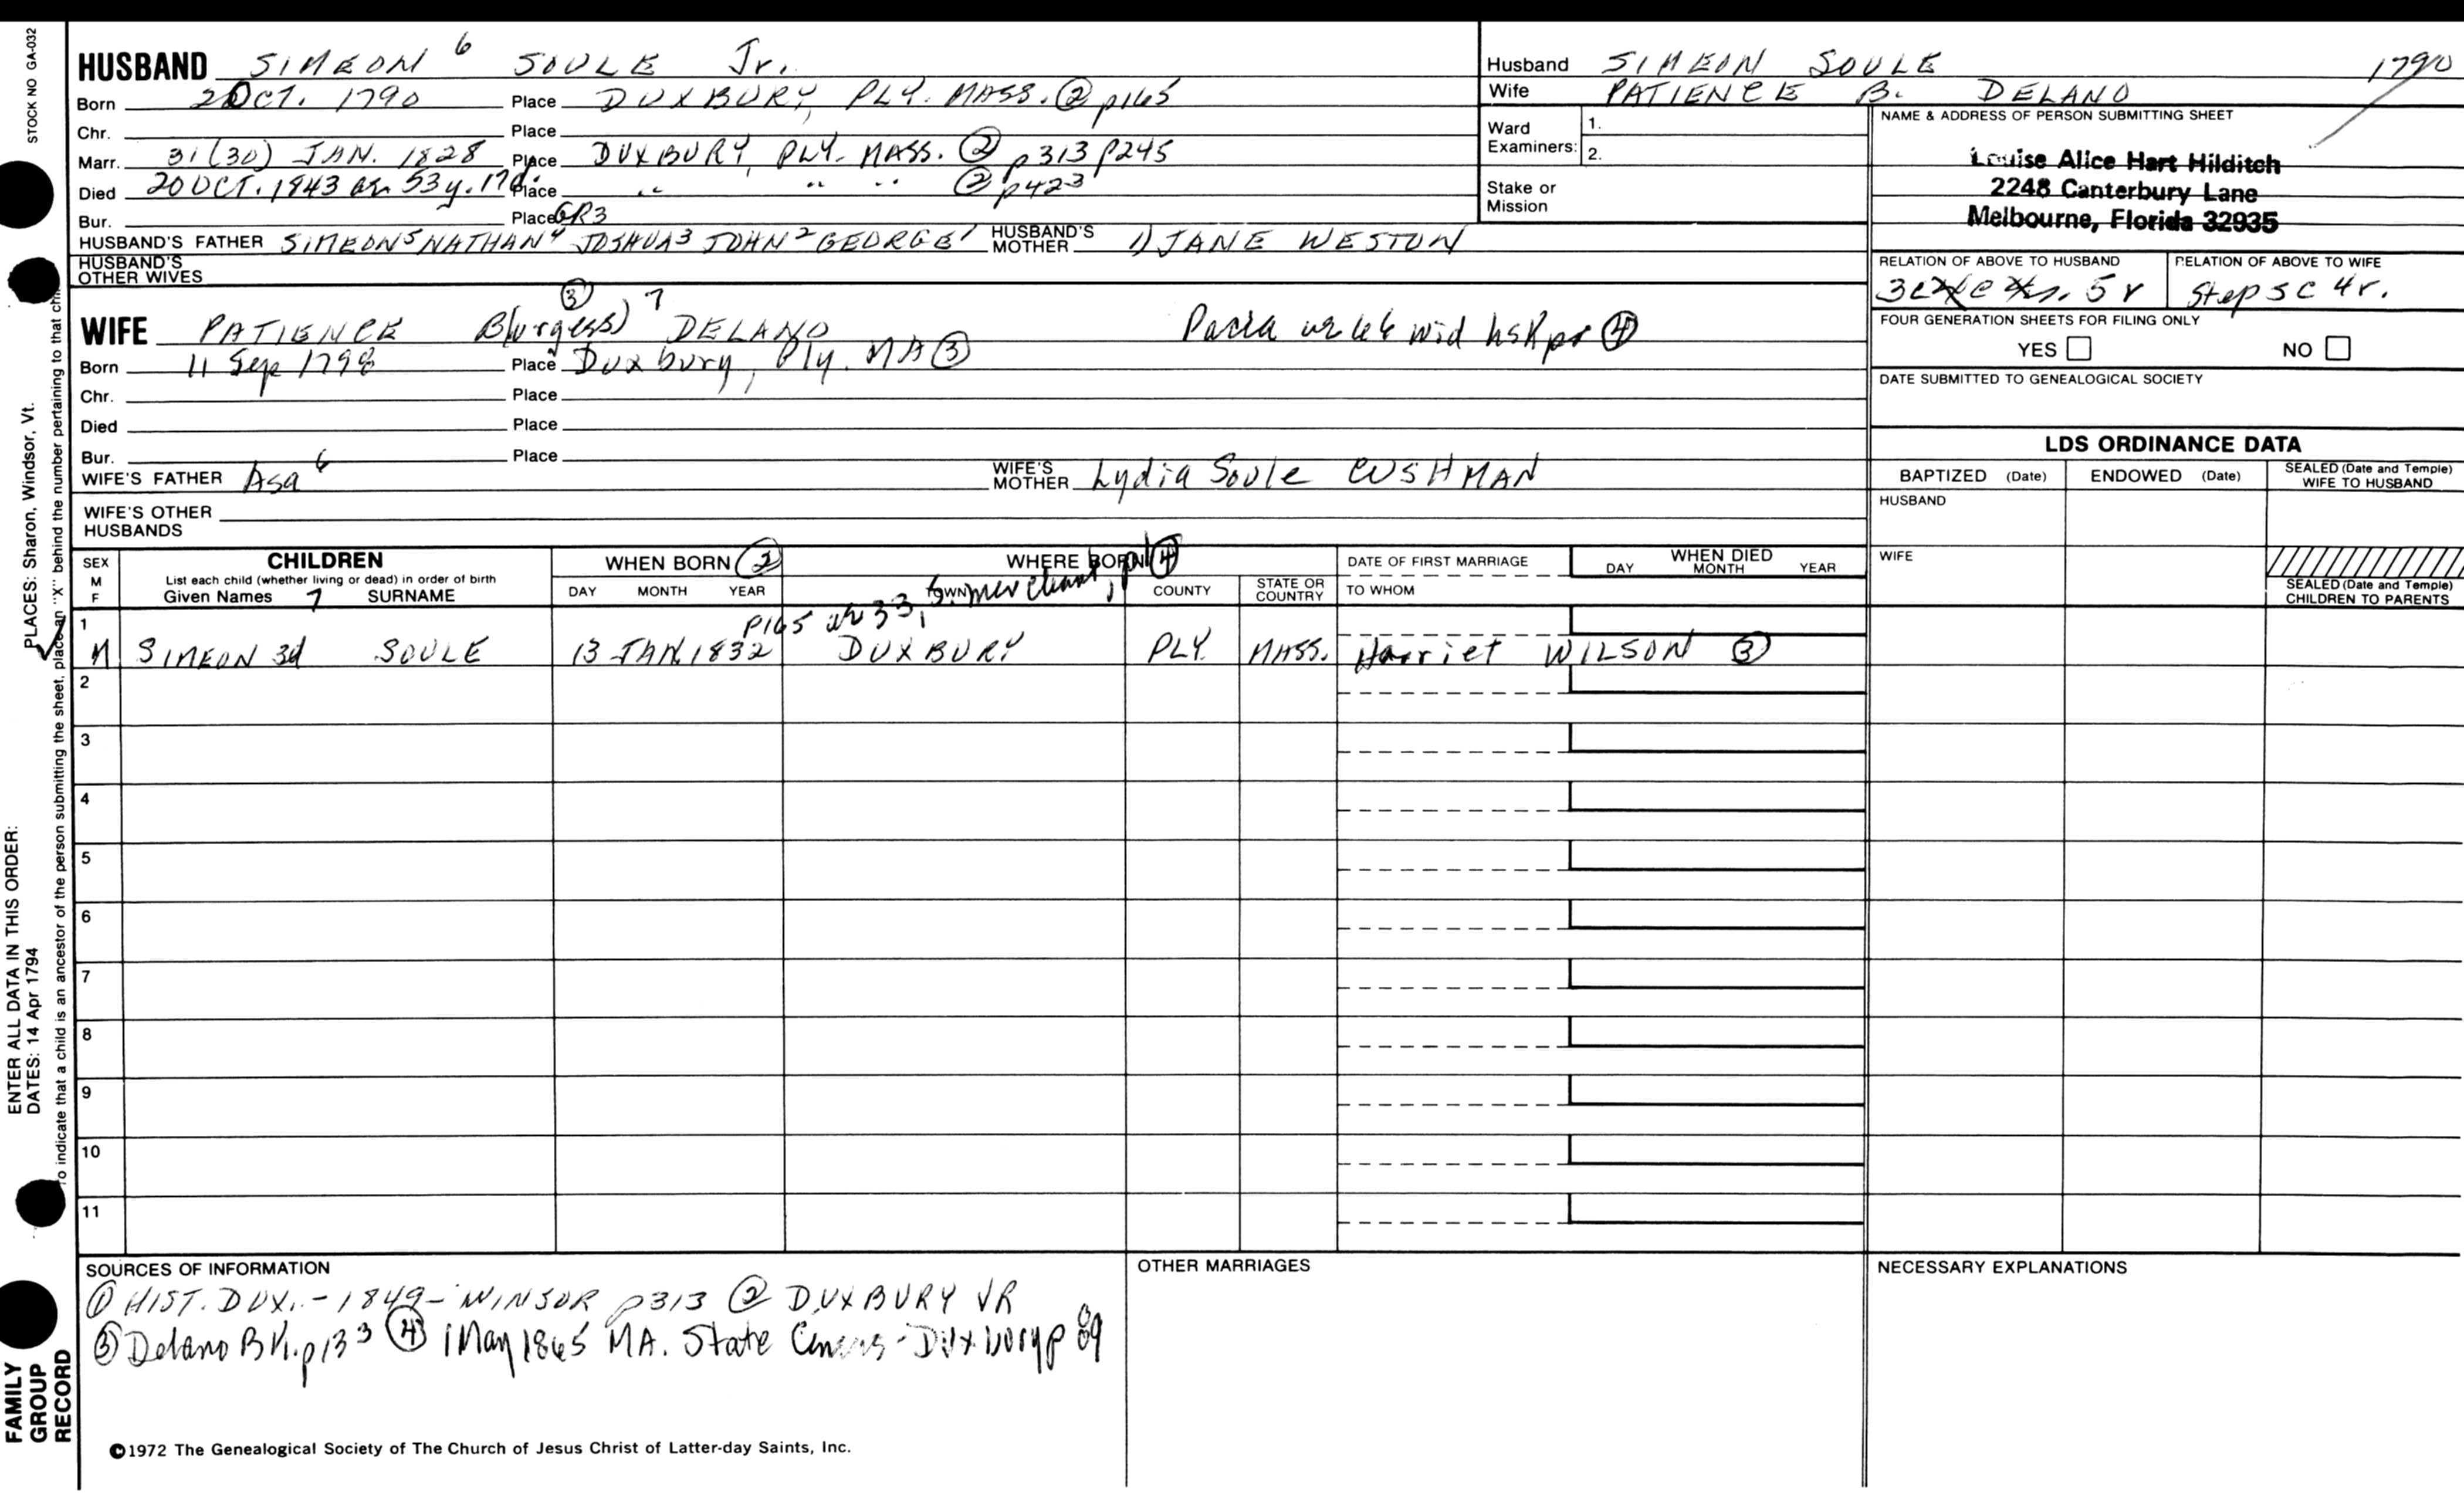 STOCK NO GA-032
HUSBAND SIMEON 6 SOULE Jr.
Born 2 OCT. 1790 Place DUXBURY, PLY. MASS. ② p165
Chr. Place
Marr. 31 (30) JAN. 1828 Place DUXBURY, PLY. MASS. ② p313 p245
Died 20 OCT. 1843 ae 53y. 17d. Place " " " ② p423
Bur. Place GR3
HUSBAND'S FATHER SIMEON5 NATHAN4 JOSHUA3 JOHN2 GEORGE1 HUSBAND'S MOTHER 1) JANE WESTON
HUSBAND'S OTHER WIVES
Husband SIMEON SOULE 1790
Wife PATIENCE B. DELANO
Ward Examiners: 1.
2.
Stake or Mission
NAME & ADDRESS OF PERSON SUBMITTING SHEET
Louise Alice Hart Hilditch
2248 Canterbury Lane
Melbourne, Florida 32935
RELATION OF ABOVE TO HUSBAND RELATION OF ABOVE TO WIFE
3c 5r Step 5c 4r.
FOUR GENERATION SHEETS FOR FILING ONLY
YES NO
DATE SUBMITTED TO GENEALOGICAL SOCIETY
WIFE PATIENCE B(urgess) ③ 7 DELANO wid hskpr ④
Born 11 Sep 1798 Place Duxbury, Ply. MA ③
Chr. Place
Died Place
Bur. Place
WIFE'S FATHER Asa 6 WIFE'S MOTHER Lydia Soule CUSHMAN
WIFE'S OTHER HUSBANDS
LDS ORDINANCE DATA
BAPTIZED (Date) ENDOWED (Date) SEALED (Date and Temple) WIFE TO HUSBAND
HUSBAND
WIFE
SEALED (Date and Temple) CHILDREN TO PARENTS
SEX M F
CHILDREN
List each child (whether living or dead) in order of birth
Given Names 7 SURNAME
WHEN BORN ②
DAY MONTH YEAR
WHERE BORN ④
TOWN COUNTY STATE OR COUNTRY
DATE OF FIRST MARRIAGE
TO WHOM
WHEN DIED
DAY MONTH YEAR
p165 ae 33, merchant,
1
M SIMEON 3d SOULE 13 JAN. 1832 DUXBURY PLY. MASS. Harriet WILSON ③
2
3
4
5
6
7
8
9
10
11
SOURCES OF INFORMATION
① HIST. DUX. - 1849 - WINSOR p313 ② DUXBURY VR
③ Delano BK. p133 ④ 1 May 1865 MA. State Census - Duxbury p 89
OTHER MARRIAGES
NECESSARY EXPLANATIONS
©1972 The Genealogical Society of The Church of Jesus Christ of Latter-day Saints, Inc.
PLACES: Sharon, Windsor, Vt.
ENTER ALL DATA IN THIS ORDER:
DATES: 14 Apr 1794
To indicate that a child is an ancestor of the person submitting the sheet, place an "X" behind the number pertaining to that
FAMILY
GROUP
RECORD